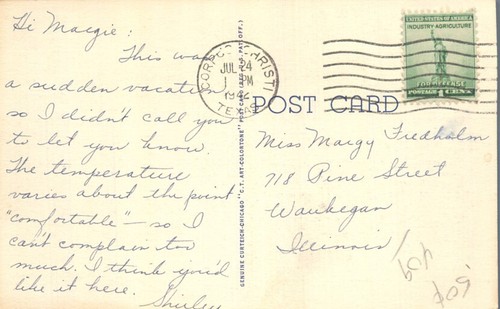 Hi Margie:
This was
a sudden vacation
so I didn't call you
to let you know.
The temperature
varies about the point
"comfortable" — so I
can't complain too
much. I think you'd
like it here.
Shirley
GENUINE CURTEICH-CHICAGO "C.T. ART-COLORTONE" POST CARD (REG. U.S. PAT. OFF.)
CORPUS CHRISTI
JUL 24
1 PM
1942
TEXAS
UNITED STATES OF AMERICA
INDUSTRY AGRICULTURE
FOR DEFENSE
POSTAGE 1 CENT
POST CARD
Miss Margy Fredholm
718 Pine Street
Waukegan
Illinois